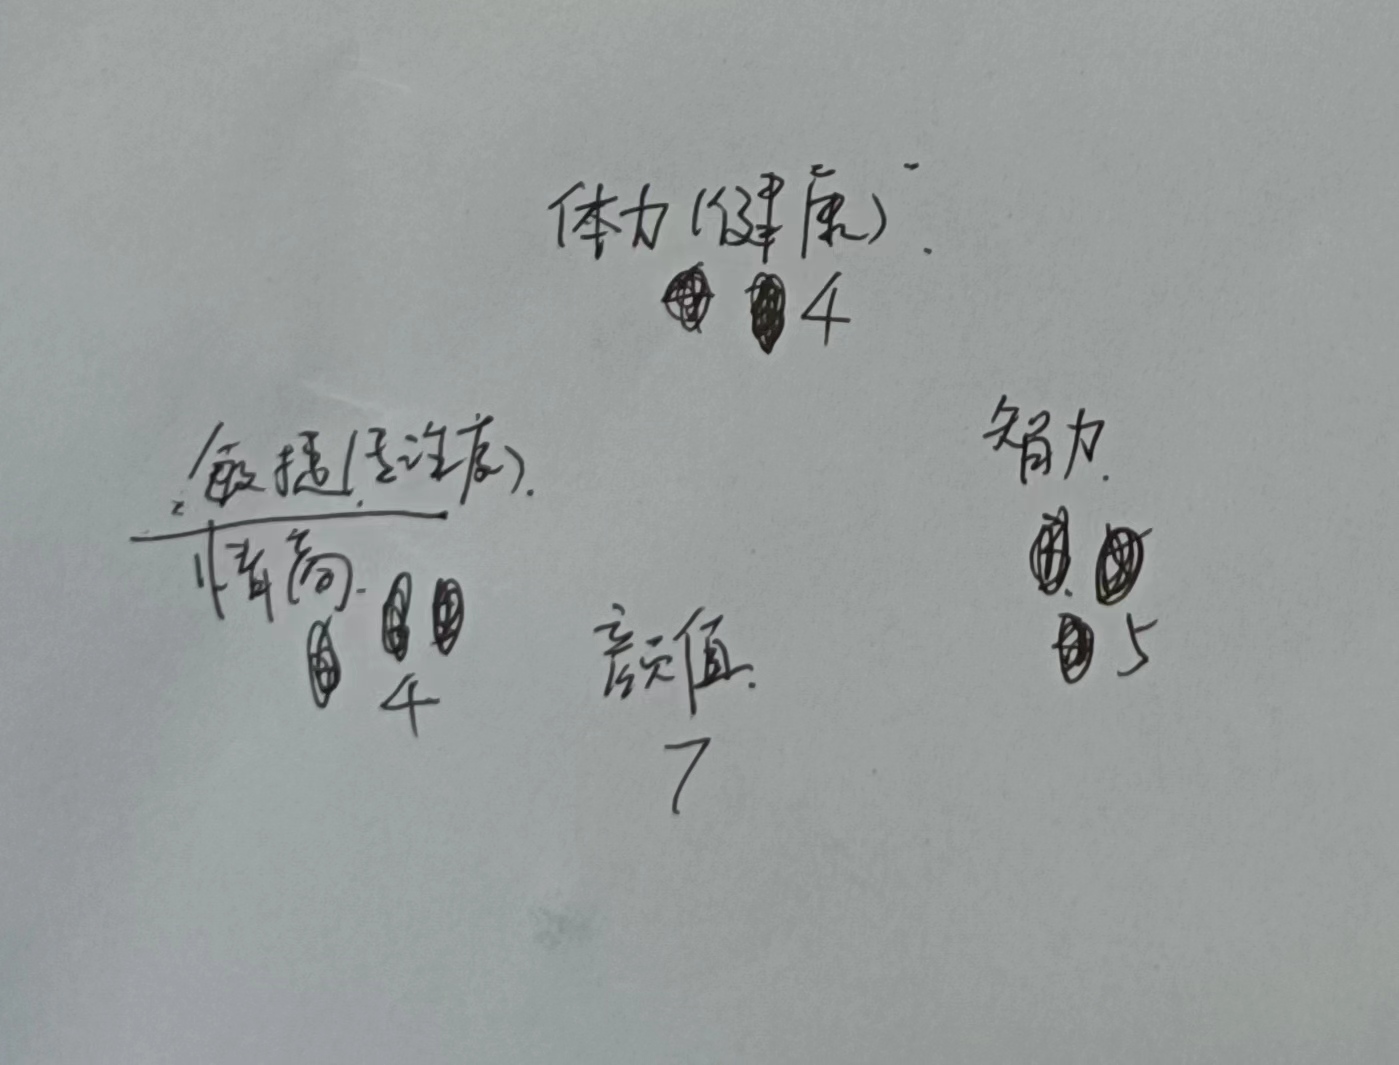 体力(健康).
4
智力.
敏捷(专注度).
情商.
5
颜值.
4
7